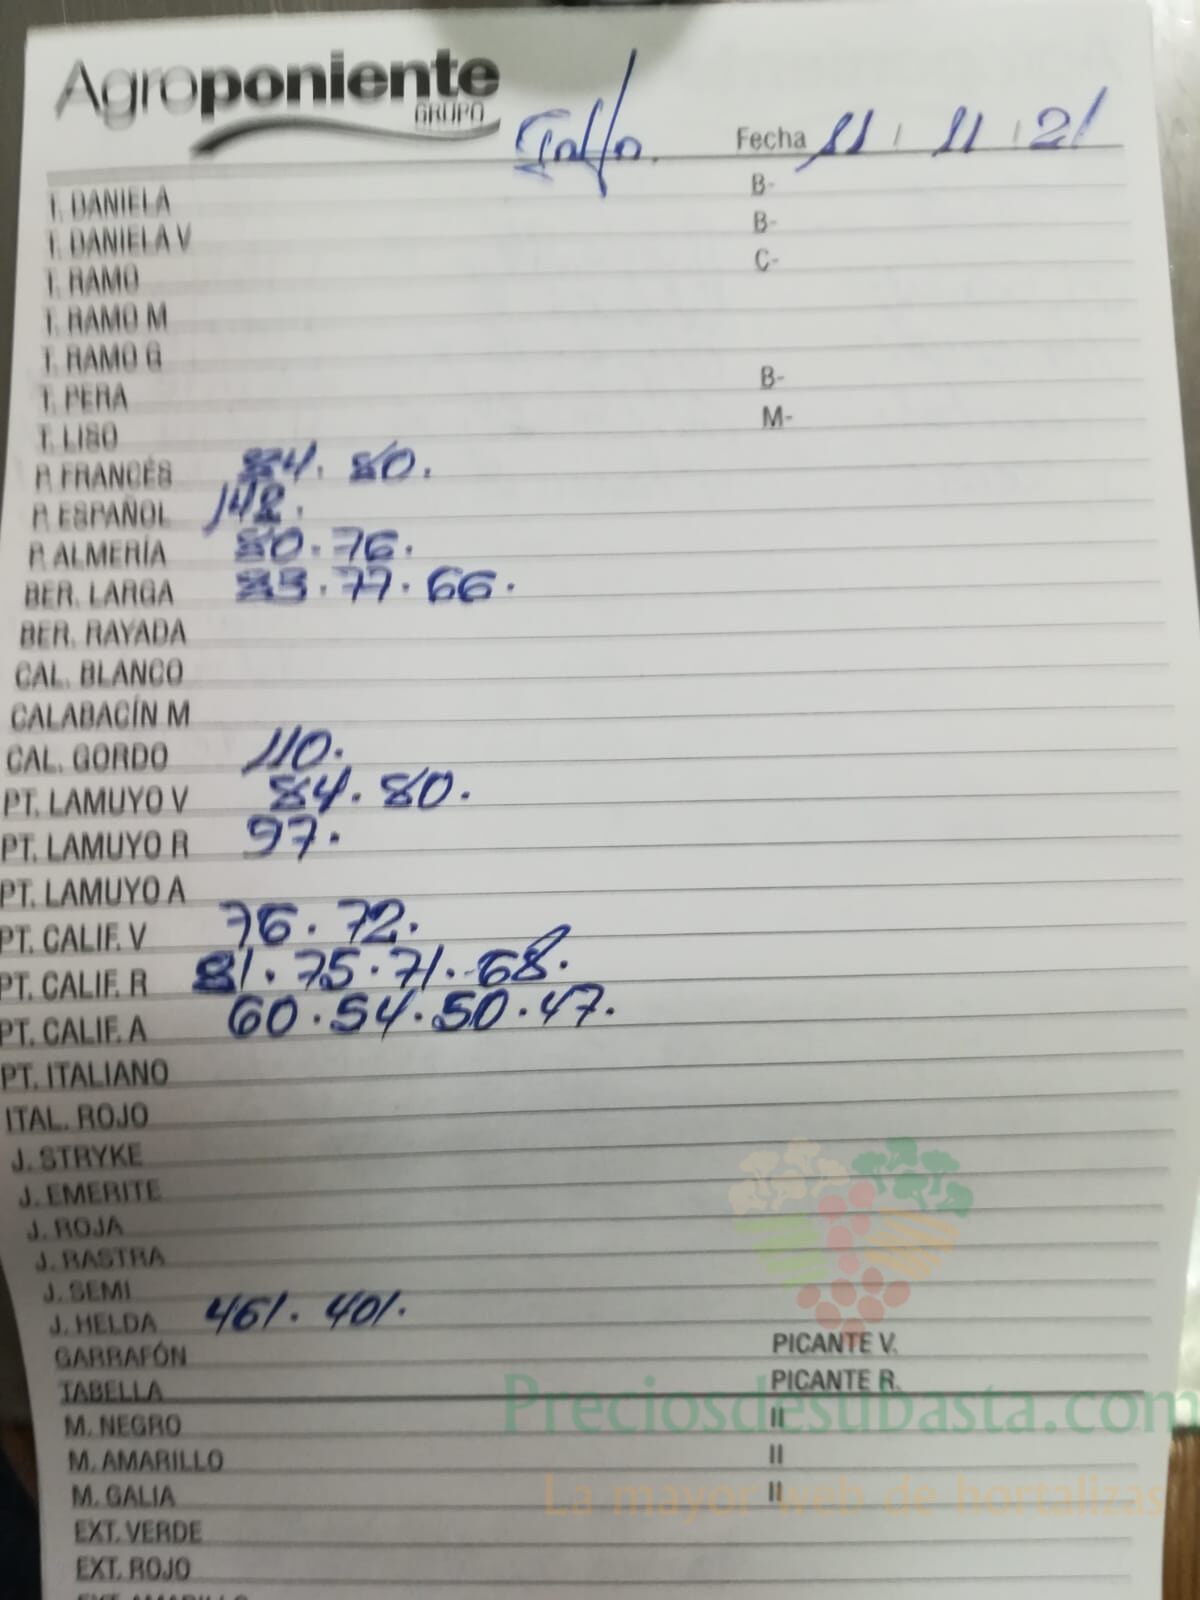 Agroponiente
GRUPO
Fecha 11 / 11 / 21
T. DANIELA B-
T. DANIELA V B-
T. RAMO C-
T. RAMO M
T. RAMO G
T. PERA B-
T. LISO M-
P. FRANCÉS 84. 80.
P. ESPAÑOL 142.
P. ALMERÍA 80. 76.
BER. LARGA 83. 77. 66.
BER. RAYADA
CAL. BLANCO
CALABACÍN M
CAL. GORDO 110.
PT. LAMUYO V 84. 80.
PT. LAMUYO R 97.
PT. LAMUYO A
PT. CALIF. V 76. 72.
PT. CALIF. R 81. 75. 71. 68.
PT. CALIF. A 60. 54. 50. 47.
PT. ITALIANO
ITAL. ROJO
J. STRYKE
J. EMERITE
J. ROJA
J. RASTRA
J. SEMI
J. HELDA 461. 401.
GARRAFÓN PICANTE V.
TABELLA PICANTE R.
M. NEGRO II
M. AMARILLO II
M. GALIA II
EXT. VERDE
EXT. ROJO
EXT. AMARILLO
Preciosdesubasta.com
La mayor web de hortalizas